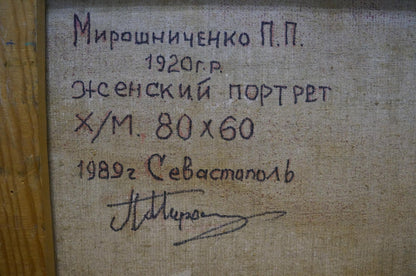 Мирошниченко П.П.
1920г.р.
Женский портрет
Х/М. 80х60
1989г Севастополь